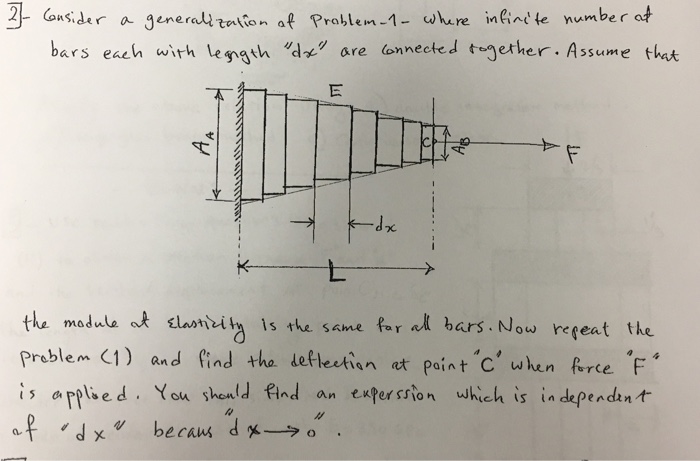 2- Consider a generalization of Problem-1- where infinite number of
bars each with legngth "dx" are connected together. Assume that
E
A_A
C
A_B
F
dx
L
the module of Elasticity is the same for all bars. Now repeat the
problem (1) and find the deflection at point "C" when force "F"
is applied. You should find an experssion which is independent
of "dx" becaus "dx → 0".